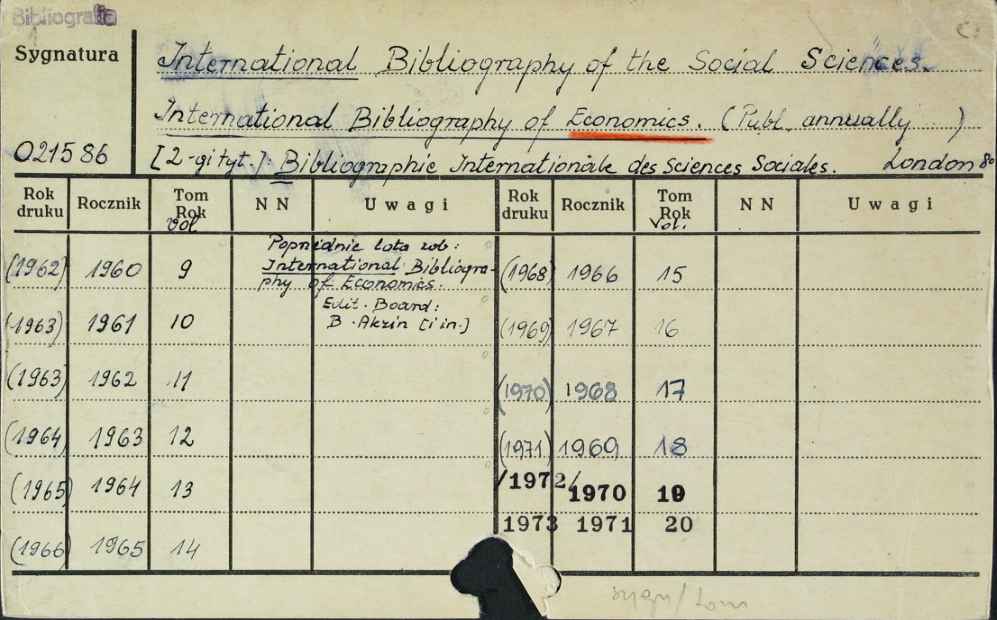 Bibliografia
Sygnatura
International Bibliography of the Social Sciences.
International Bibliography of Economics. (Publ. annually )
021586
[2-gi tyt.]: Bibliographie Internationale des Sciences Sociales. London 8º
Rok druku Rocznik Tom Rok vol. NN Uwagi Rok druku Rocznik Tom Rok Vol. NN Uwagi
Poprzednie lata zob:
International Bibliogra-
phy of Economics.
Edit. Board:
B. Akzin [i in.]
(1962) 1960 9
(1963) 1961 10
(1963) 1962 11
(1964) 1963 12
(1965) 1964 13
(1966) 1965 14
(1968) 1966 15
(1969) 1967 16
(1970) 1968 17
(1971) 1969 18
/1972/ 1970 19
1973 1971 20